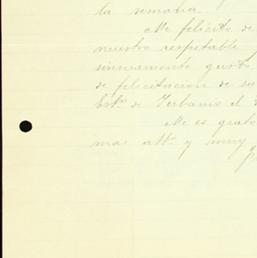 la semana.
Me felicito de
nuestro respetable
sinceramente gusto
de felicitacion de su
Est. de Terbanis el
Me es grato
mas att. y muy